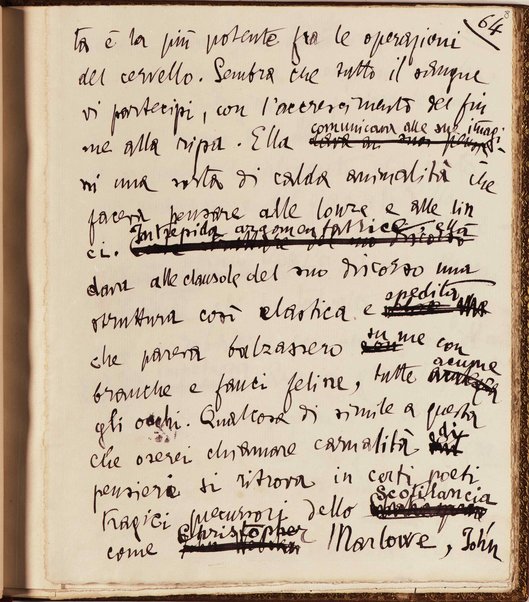 64
ta è la più potente fra le operazioni
del cervello. Sembra che tutto il sangue
vi partecipi, con l'accrescimento del fiu
me alla ripa. Ella comunicava alle sue imagi-
ni una sorta di calda animalità che
faceva pensare alle lonze e alle lin
ci. Intrepida argomentatrice, ella
dava alle clausole del suo discorso una
struttura così elastica e spedita
che pareva balzassero su me con
branche e fauci feline, tutte acume
gli occhi. Qualcosa di simile a questa
che oserei chiamare carnalità di
pensiero si ritrova in certi poeti
tragici precursori dello Scotilancia
come Christopher Marlowe, John